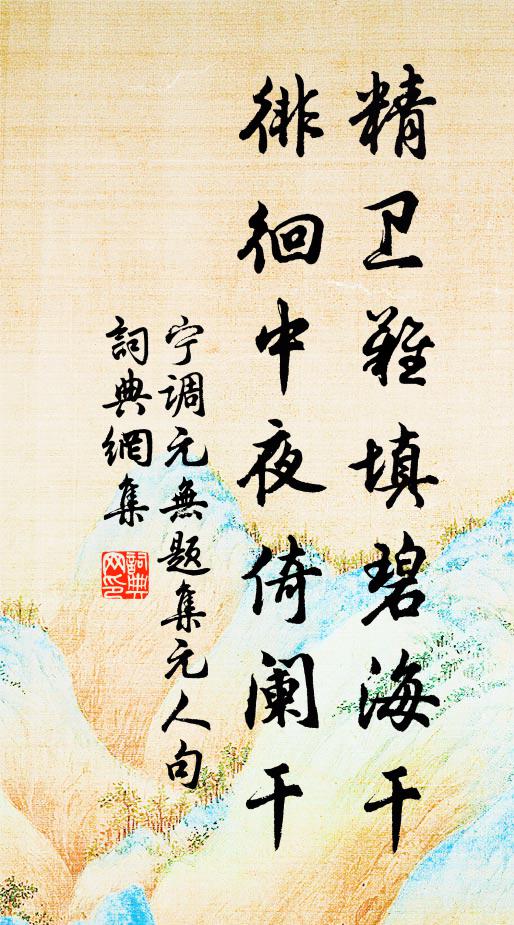 精卫难填碧海干
徘徊中夜倚阑干
宁调元無题集元人句
詞典網集
詞典网印